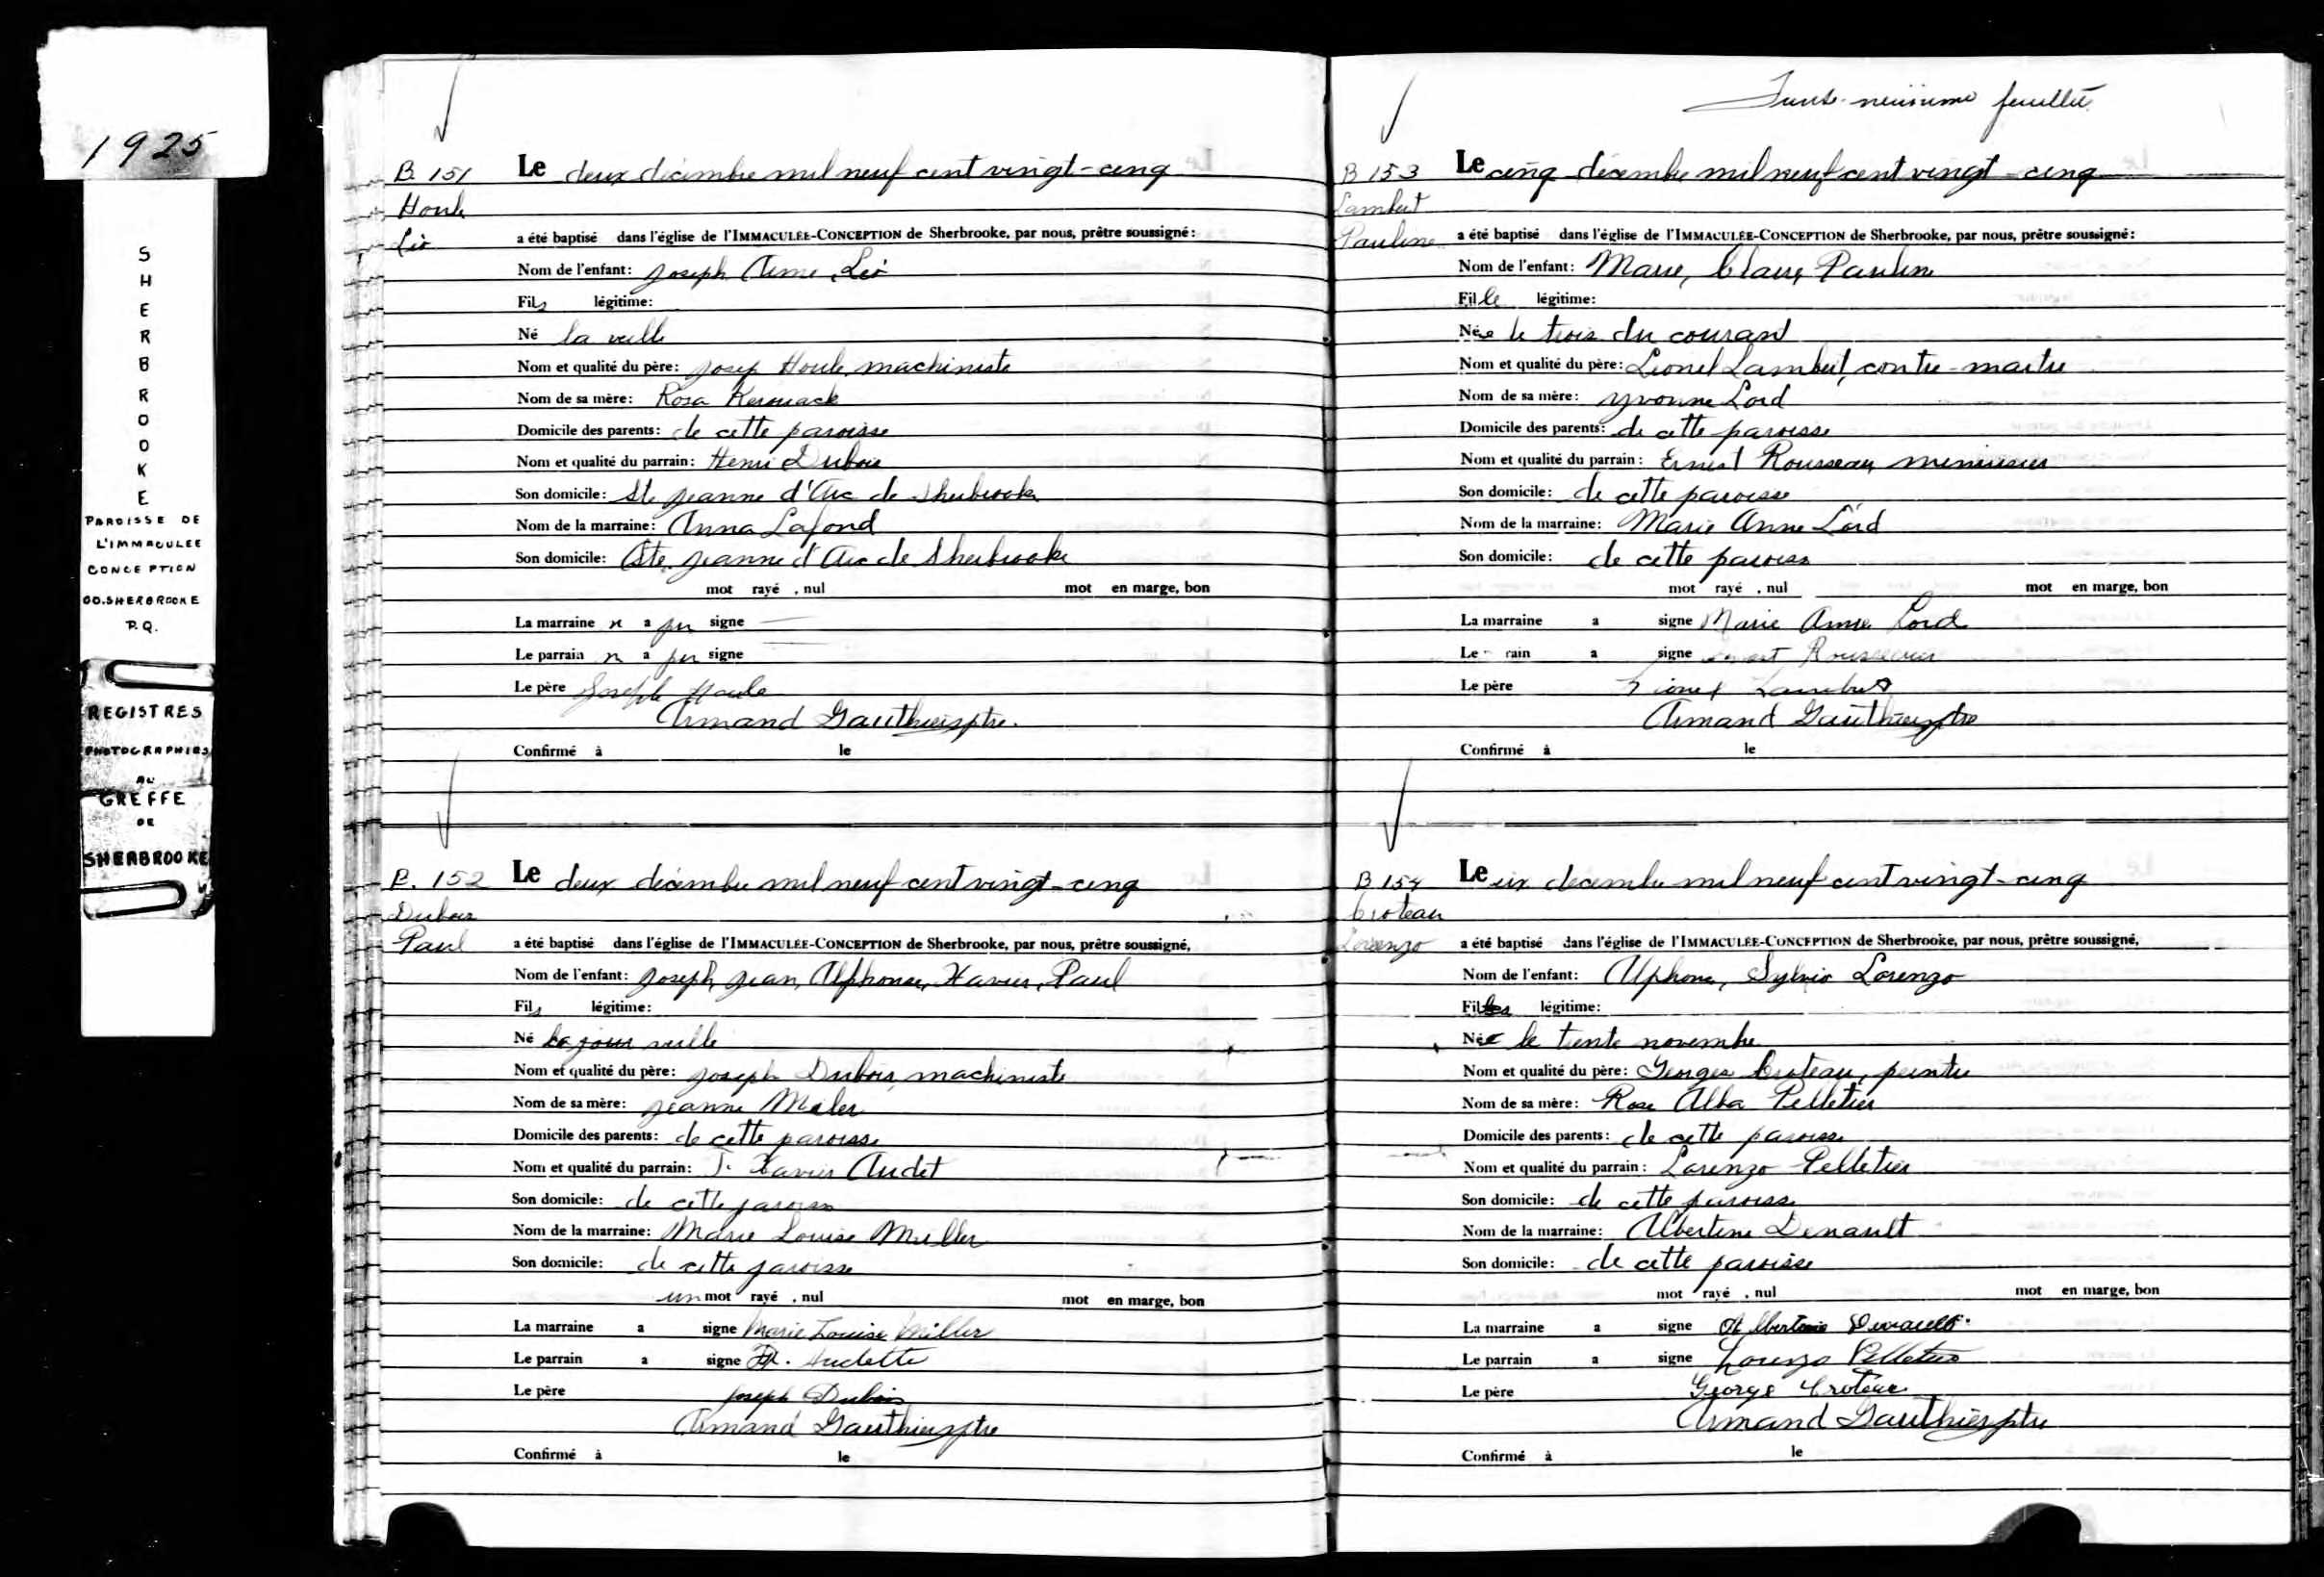 1925
SHERBROOKE
PAROISSE DE
L'IMMACULEE
CONCEPTION
CO. SHERBROOKE
P.Q.
REGISTRES
PHOTOGRAPHIES
AU
GREFFE
DE
SHERBROOKE
B. 151
Houle
Léo
Le deux décembre mil neuf cent vingt-cinq
a été baptisé dans l'église de l'IMMACULÉE-CONCEPTION de Sherbrooke, par nous, prêtre soussigné:
Nom de l'enfant: Joseph Aimé, Léo
Fils légitime:
Né la veille
Nom et qualité du père: Josep Houle, machiniste
Nom de sa mère: Rosa Kerouack
Domicile des parents: de cette paroisse
Nom et qualité du parrain: Henri Dubois
Son domicile: Ste Jeanne d'Arc de Sherbrooke
Nom de la marraine: Anna Lafond
Son domicile: Ste Jeanne d'Arc de Sherbrooke
mot rayé, nul mot en marge, bon
La marraine n a pu signe
Le parrain n a pu signe
Le père Joseph Houle
Armand Gauthier ptre.
Confirmé à le
B. 152
Dubois
Paul
Le deux décembre mil neuf cent vingt-cinq
a été baptisé dans l'église de l'IMMACULÉE-CONCEPTION de Sherbrooke, par nous, prêtre soussigné,
Nom de l'enfant: Joseph, Jean, Alphonse, Xavier, Paul
Fils légitime:
Né la jour veille
Nom et qualité du père: Joseph Dubois, machiniste
Nom de sa mère: Jeanne Miler
Domicile des parents: de cette paroisse
Nom et qualité du parrain: Xavier Audet
Son domicile: de cette paroisse
Nom de la marraine: Marie Louise Muller
Son domicile: de cette paroisse
un mot rayé, nul mot en marge, bon
La marraine a signe Marie Louise Miller
Le parrain a signe Audette
Le père Joseph Dubois
Armand Gauthier ptre
Confirmé à le
Trente-neuvième feuillet
B 153
Lambert
Pauline
Le cinq décembre mil neuf cent vingt-cinq
a été baptisé dans l'église de l'IMMACULÉE-CONCEPTION de Sherbrooke, par nous, prêtre soussigné:
Nom de l'enfant: Marie, Claire, Pauline
Fille légitime:
Née le trois du courant
Nom et qualité du père: Lionel Lambert, contre-maître
Nom de sa mère: Yvonne Lord
Domicile des parents: de cette paroisse
Nom et qualité du parrain: Ernest Rousseau, menuisier
Son domicile: de cette paroisse
Nom de la marraine: Marie Anne Lord
Son domicile: de cette paroisse
mot rayé, nul mot en marge, bon
La marraine a signe Marie Anne Lord
Le rain a signe Ernest Rousseau
Le père Lionel Lambert
Armand Gauthier ptre
Confirmé à le
B 154
Croteau
Lorenzo
Le six décembre mil neuf cent vingt-cinq
a été baptisé dans l'église de l'IMMACULÉE-CONCEPTION de Sherbrooke, par nous, prêtre soussigné,
Nom de l'enfant: Alphonse, Sylvio Lorenzo
Fils légitime:
Né le trente novembre
Nom et qualité du père: Georges Croteau, peintre
Nom de sa mère: Rose Alba Pelletier
Domicile des parents: de cette paroisse
Nom et qualité du parrain: Lorenzo Pelletier
Son domicile: de cette paroisse
Nom de la marraine: Albertine Denault
Son domicile: de cette paroisse
mot rayé, nul mot en marge, bon
La marraine a signe Albertine Denault
Le parrain a signe Lorenzo Pelletier
Le père George Croteau
Armand Gauthier ptre
Confirmé à le